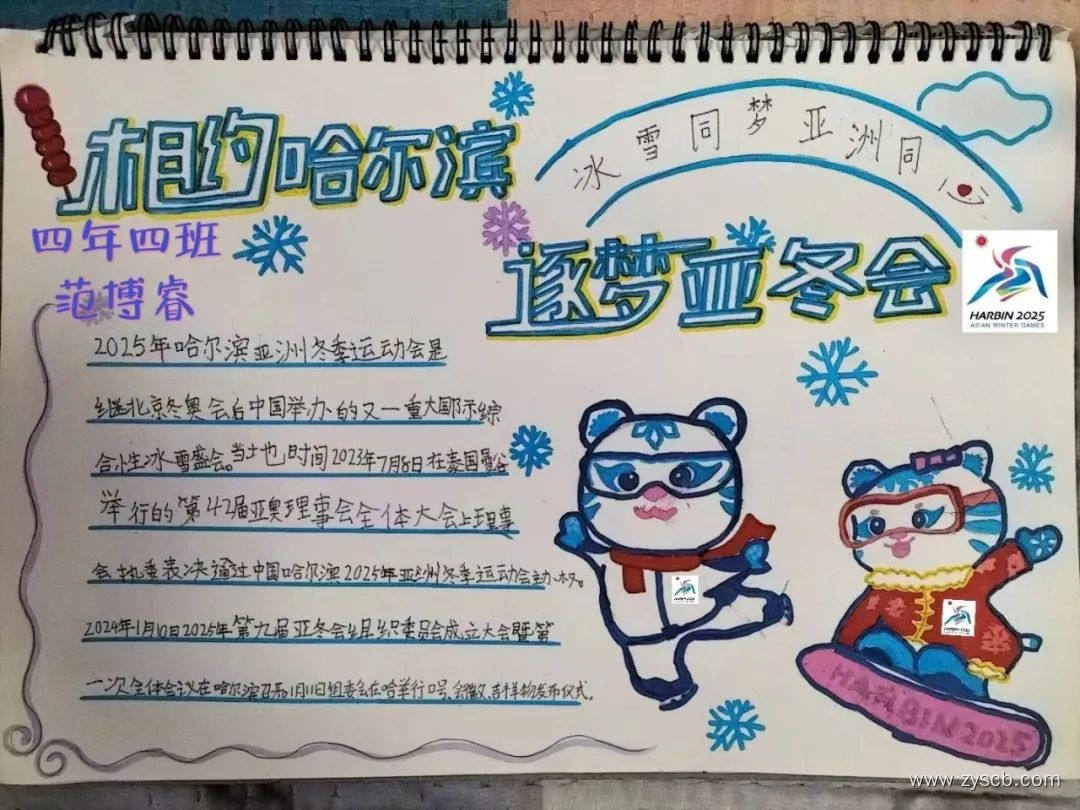 相约哈尔滨
冰雪同梦亚洲同心
四年四班
范博睿
逐梦亚冬会
HARBIN 2025
ASIAN WINTER GAMES
2025年哈尔滨亚洲冬季运动会是
继北京冬奥会后中国举办的又一重大国际综
合性冰雪盛会。当地时间2023年7月8日在泰国曼谷
举行的第42届亚奥理事会全体大会上理事
会执委表决通过中国哈尔滨2025年亚洲冬季运动会主办权。
2024年1月10日2025年第九届亚冬会组织委员会成立大会暨第
一次全体会议在哈尔滨召开。1月11日组委会在哈举行口号、会徽、吉祥物发布仪式。
HARBIN 2025
HARBIN 2025
HARBIN 2025
www.zyscb.com